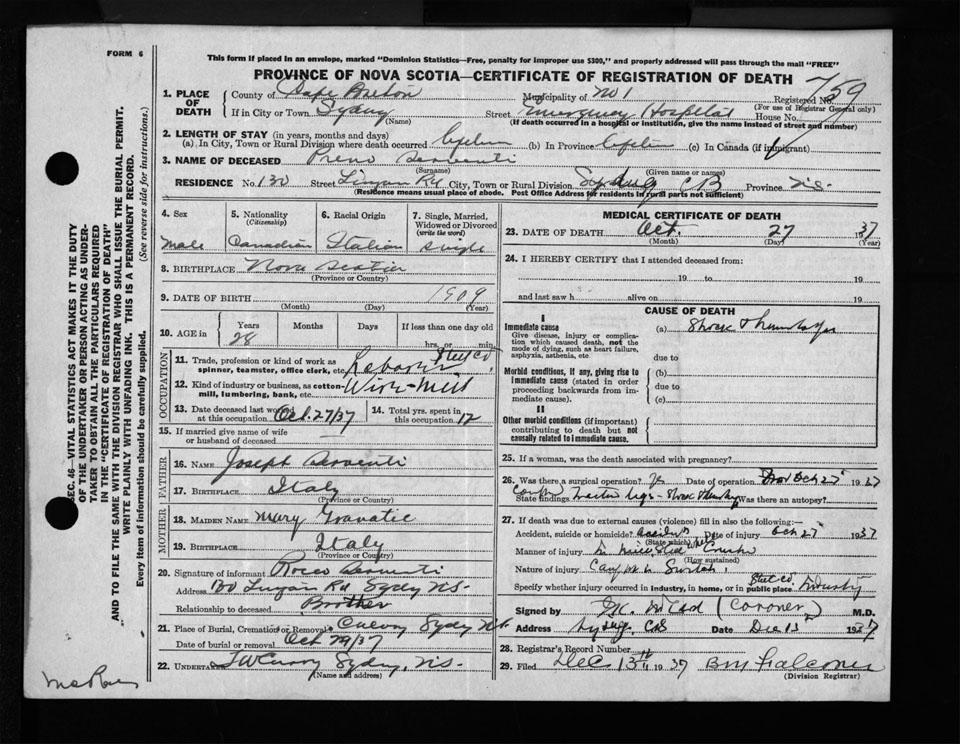 FORM 6
This form if placed in an envelope, marked "Dominion Statistics—Free, penalty for improper use $300," and properly addressed will pass through the mail "FREE"
PROVINCE OF NOVA SCOTIA—CERTIFICATE OF REGISTRATION OF DEATH
1. PLACE OF DEATH
County of Cape Breton Municipality of No 1 Registered No. 759
(For use of Registrar General only)
If in City or Town Sydney Street Hospital House No.
(Name)
(If death occurred in a hospital or institution, give the name instead of street and number)
2. LENGTH OF STAY (in years, months and days)
(a) In City, Town or Rural Division where death occurred (b) In Province (c) In Canada (if immigrant)
3. NAME OF DECEASED
(Surname) (Given name or names)
RESIDENCE No. 130 Street City, Town or Rural Division Sydney CB Province N.S.
(Residence means usual place of abode. Post Office Address for residents in rural parts not sufficient)
4. Sex
Male
5. Nationality (Citizenship)
Canadian
6. Racial Origin
Italian
7. Single, Married, Widowed or Divorced (write the word)
Single
8. BIRTHPLACE Nova Scotia
(Province or Country)
9. DATE OF BIRTH 1909
(Month) (Day) (Year)
10. AGE in Years Months Days If less than one day
28 hrs. or min.
OCCUPATION
11. Trade, profession or kind of work as spinner, teamster, office clerk, etc. Laborer Steel Co.
12. Kind of industry or business, as cotton-mill, lumbering, bank, etc. Wire-Mill
13. Date deceased last worked at this occupation Oct. 27/37
14. Total yrs. spent in this occupation 12
15. If married give name of wife or husband of deceased
FATHER
16. NAME Joseph
17. BIRTHPLACE Italy
(Province or Country)
MOTHER
18. MAIDEN NAME Mary
19. BIRTHPLACE Italy
(Province or Country)
20. Signature of informant Rocco
Address 130 Rd Sydney NS
Relationship to deceased Brother
21. Place of Burial, Cremation or Removal Sydney N.S.
Date of burial or removal Oct 29/37
22. UNDERTAKER Sydney, N.S.
(Name and address)
MEDICAL CERTIFICATE OF DEATH
23. DATE OF DEATH Oct. 27 1937
(Month) (Day) (Year)
24. I HEREBY CERTIFY that I attended deceased from:
19 to 19
and last saw h alive on 19
CAUSE OF DEATH
I
Immediate cause
Give disease, injury or complication which caused death, not the mode of dying, such as heart failure, asphyxia, asthenia, etc.
(a) Shock & Hemorrhage
due to
Morbid conditions, if any, giving rise to immediate cause (stated in order proceeding backwards from immediate cause).
(b)
due to
(c)
II
Other morbid conditions (if important) contributing to death but not causally related to immediate cause.
25. If a woman, was the death associated with pregnancy?
26. Was there a surgical operation? Yes Date of operation Oct 27 1937
State findings legs - Shock Was there an autopsy?
27. If death was due to external causes (violence) fill in also the following:—
Accident, suicide or homicide? Accident Date of injury Oct 27 1937
(State which)
Manner of injury
(How sustained)
Nature of injury
Specify whether injury occurred in industry, in home, or in public place Steel Co. Industry
Signed by (Coroner) M.D.
Address Sydney, C.B. Date Dec 13 1937
28. Registrar's Record Number
29. Filed Dec 13th 1937 B M Falconer
(Division Registrar)
SEC. 46—VITAL STATISTICS ACT MAKES IT THE DUTY OF THE UNDERTAKER OR PERSON ACTING AS UNDERTAKER TO OBTAIN ALL THE PARTICULARS REQUIRED IN THE "CERTIFICATE OF REGISTRATION OF DEATH"
AND TO FILE THE SAME WITH THE DIVISION REGISTRAR WHO SHALL ISSUE THE BURIAL PERMIT.
WRITE PLAINLY WITH UNFADING INK. THIS IS A PERMANENT RECORD.
Every item of information should be carefully supplied. (See reverse side for instructions.)